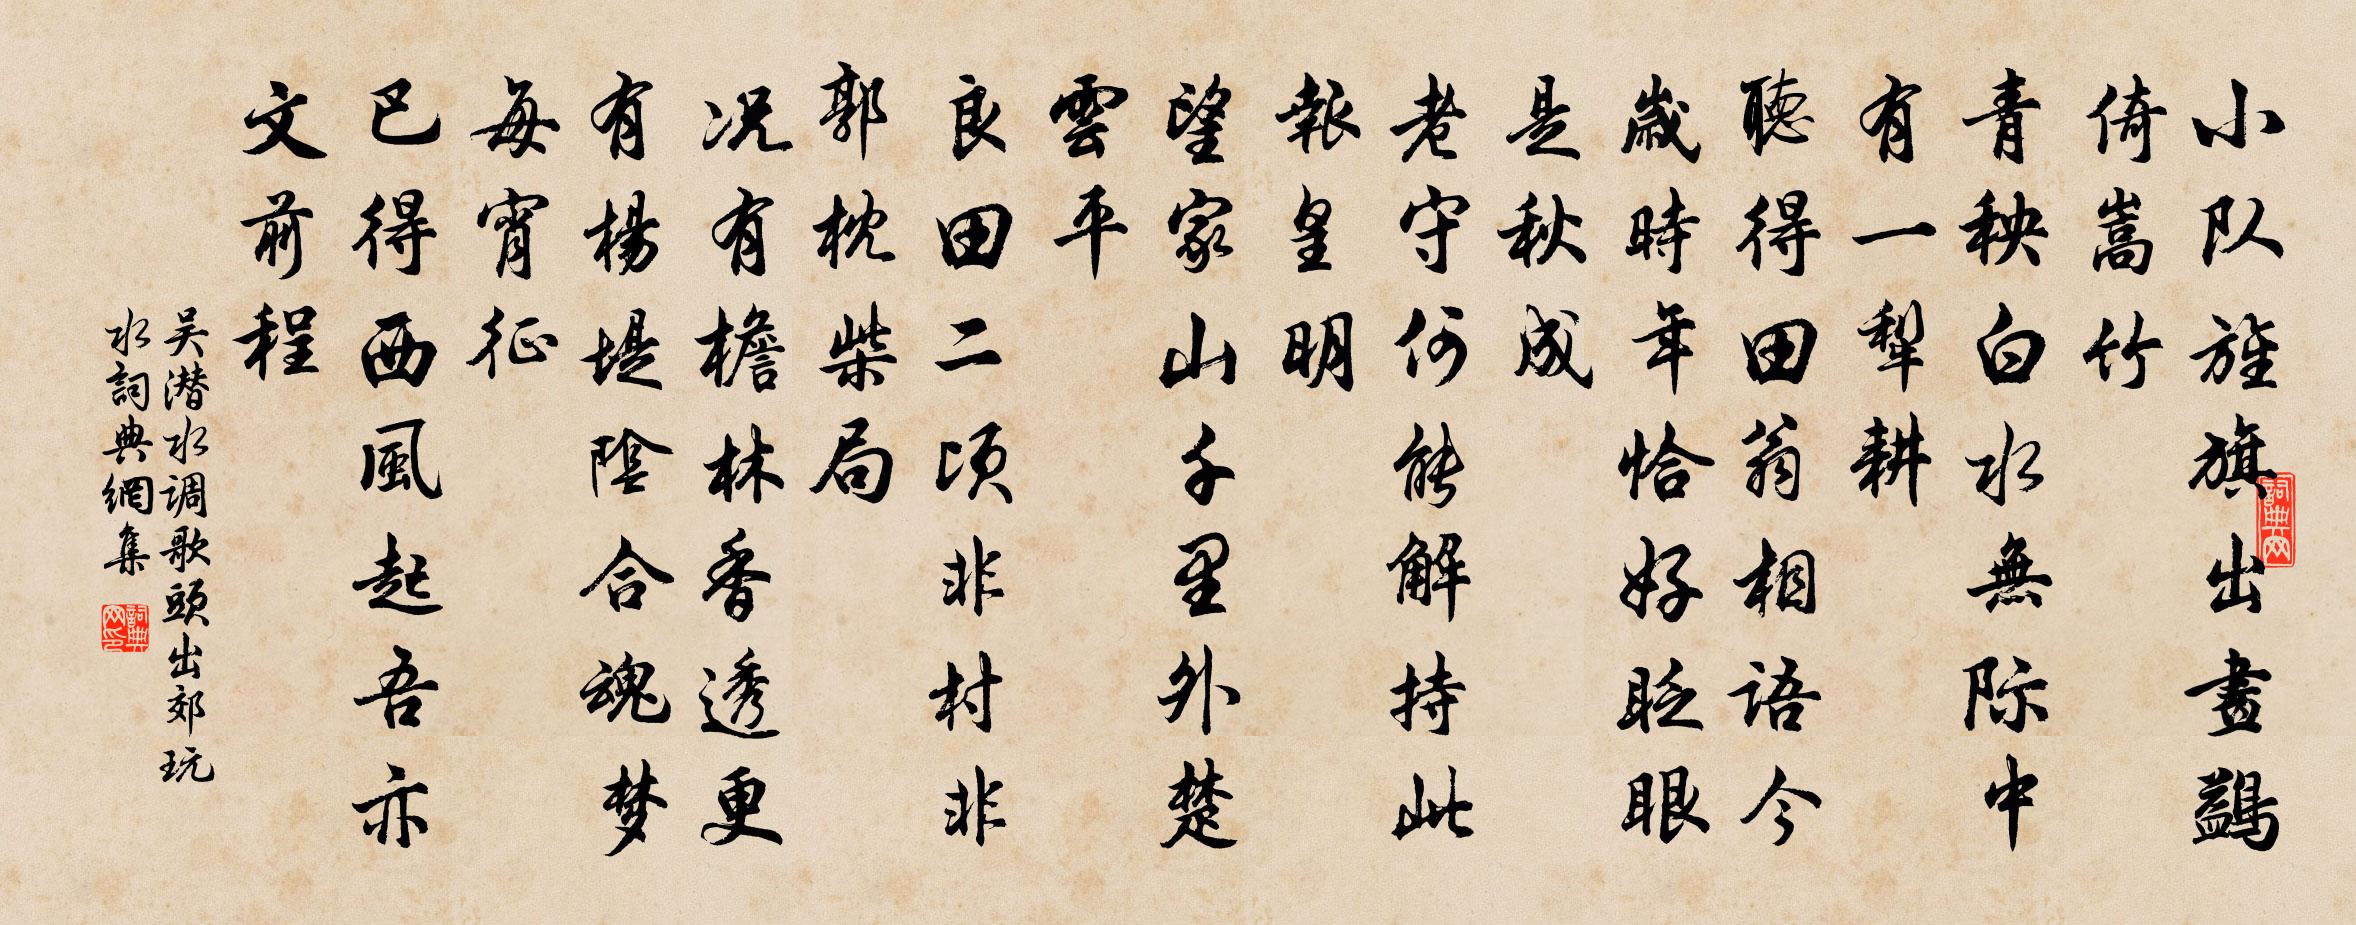 小队旌旗出畫鷁
倚嵩竹
青秧白水無际中
有一犁耕
聽得田翁相語今
歲時年恰好眨眼
是秋成
老守何能解持此
報皇明
望家山千里外楚
雲平
良田二顷非村非
郭枕柴局
况有檐林香透更
有楊堤陰合魂梦
每宵征
已得西風起吾亦
文前程
吴潜水调歌頭出郊玩
水詞典網集
詞典网